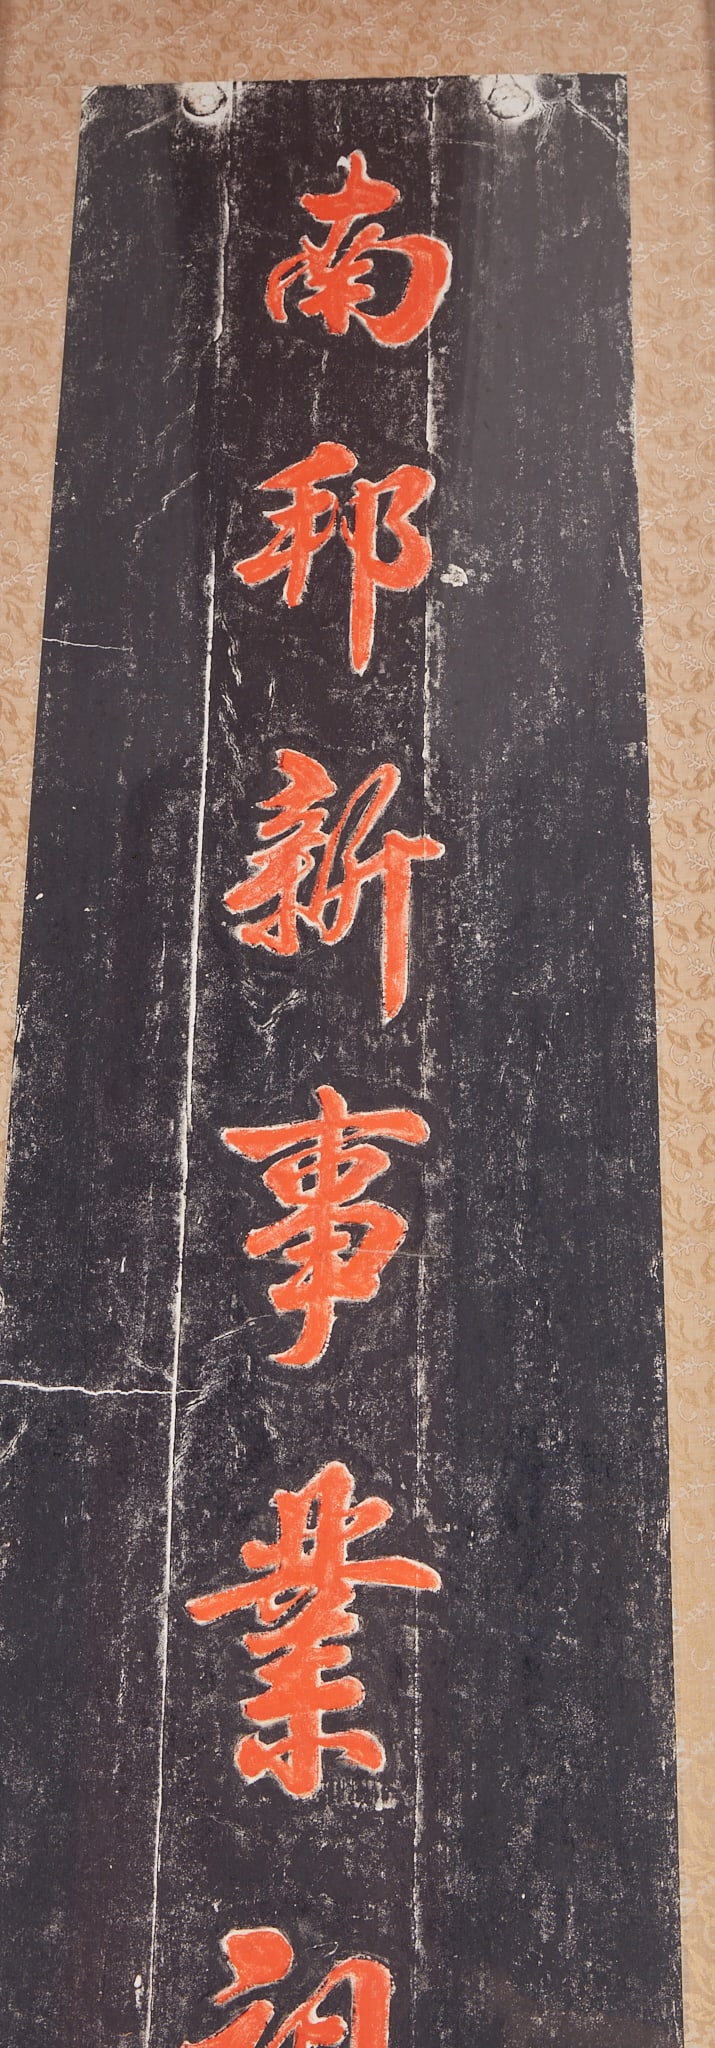 南邦新事業